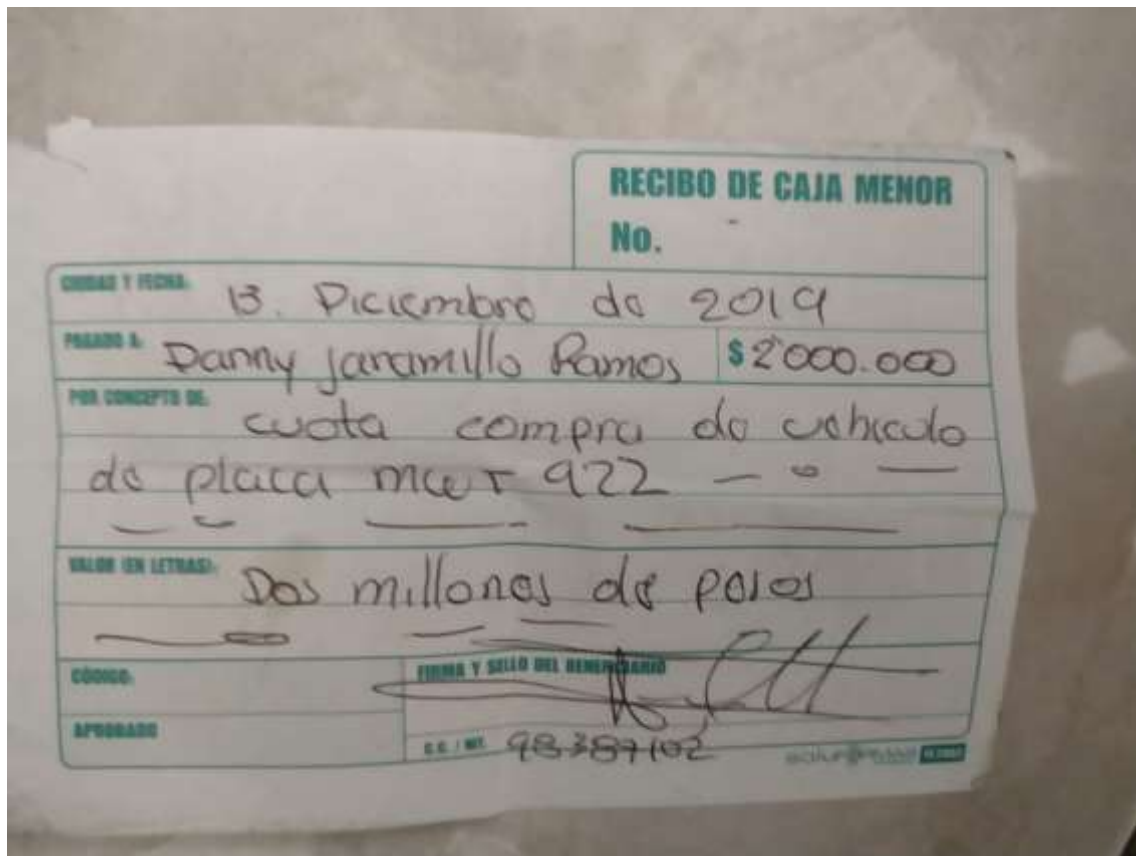 RECIBO DE CAJA MENOR
No.
CIUDAD Y FECHA: 13. Diciembre de 2019
PAGADO A: Danny jaramillo Ramos $ 2'000.000
POR CONCEPTO DE: cuota compra de vehiculo
de placa 922
VALOR (EN LETRAS): Dos millones de pesos
CÓDIGO: FIRMA Y SELLO DEL BENEFICIARIO
APROBADO
C.C. / NIT. 98387102